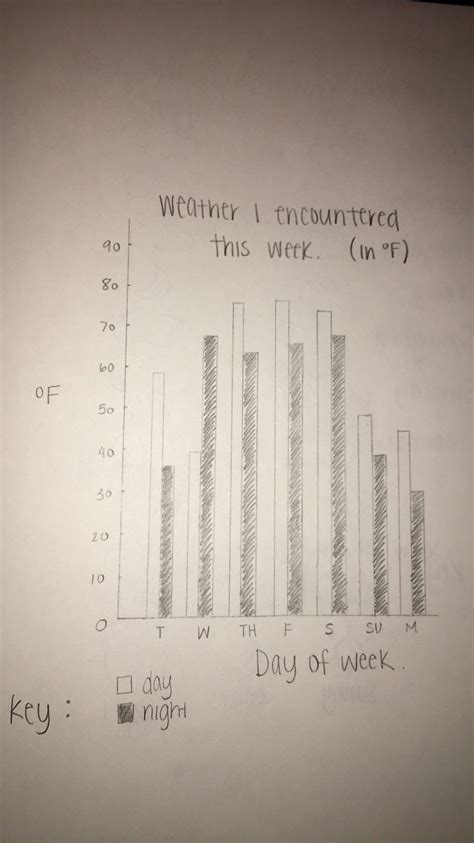 Weather I encountered
this week. (in °F)
90
80
70
60
°F
50
40
30
20
10
0
T W TH F S SU M
Day of week.
key:
day
night